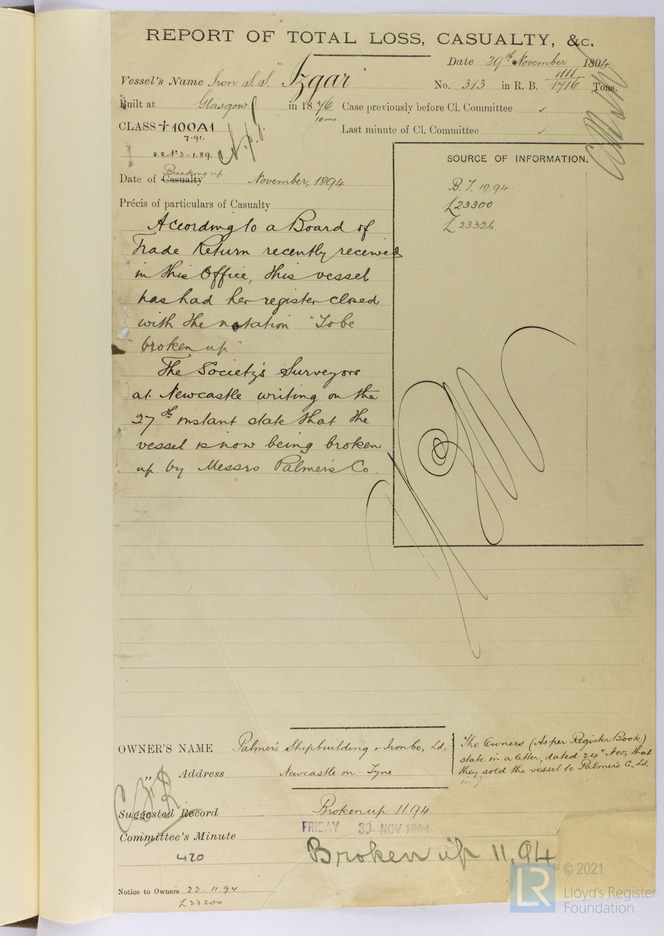 REPORT OF TOTAL LOSS, CASUALTY, &c.
Date 29th November 1894
Vessel's Name Iron S.S. "Izgar"
No. 313 in R. B. 1111 / 1716 Tons.
Built at Glasgow in 1876
10 mo
Case previously before Cl. Committee ✓
CLASS +100A1
7.91.
Last minute of Cl. Committee ✓
S.S. No 3-1.89.
Date of Casualty Breaking up November, 1894
SOURCE OF INFORMATION.
B.T. 10.94.
L23300
L23326
Précis of particulars of Casualty
According to a Board of
Trade Return recently received
in this Office, this vessel
has had her register closed
with the notation "To be
"broken up"
The Society's Surveyors
at Newcastle writing on the
27th instant state that the
vessel is now being broken
up by Messrs Palmer's Co.
OWNER'S NAME Palmer's Shipbuilding & Iron Co, Ld.
„ Address Newcastle on Tyne
The Owners (As per Register Book)
state in a letter, dated 24th Nov, that
they sold the vessel to Palmer's C. Ld.
Suggested Record Broken up 11.94
FRIDAY 30 NOV 1894
Committee's Minute
Broken up 11.94
420
Notice to Owners 22.11.94
L23300
© 2021
LR
Lloyd's Register
Foundation